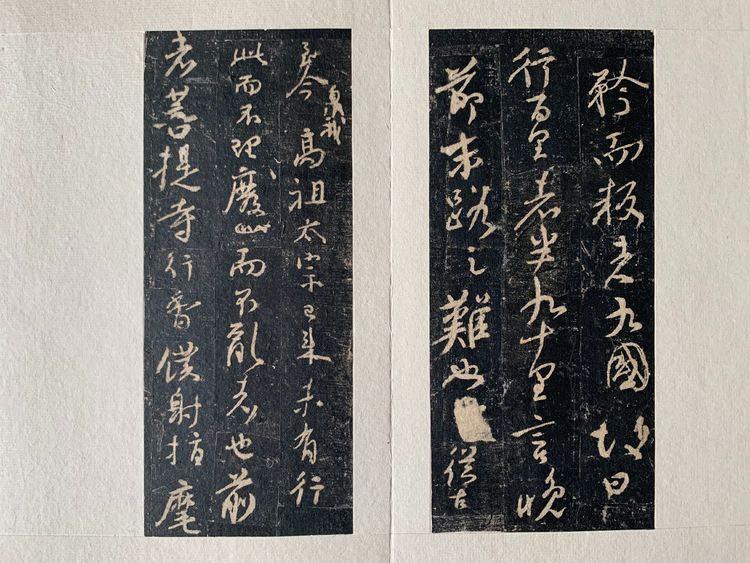 矜而叛者九國故曰
行百里者半九十里言晚
節末路之難也從古
至今洎我高祖太宗已來未有行
此而不理廢此而不亂者也前
者菩提寺行香僕射指麾